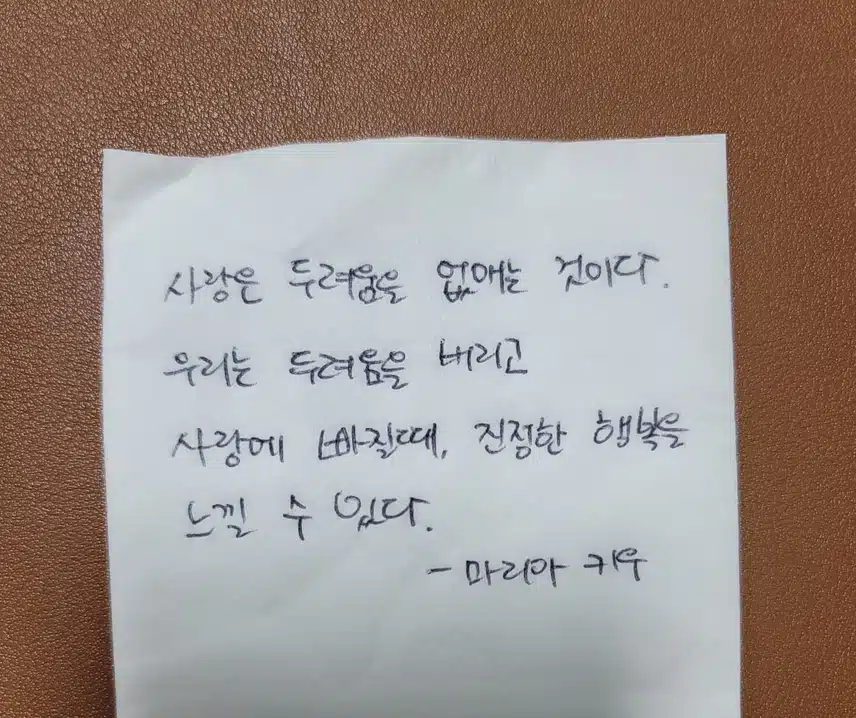 사랑은 두려움을 없애는 것이다.
우리는 두려움을 버리고
사랑에 빠질때, 진정한 행복을
느낄 수 있다.
- 마리아 키우